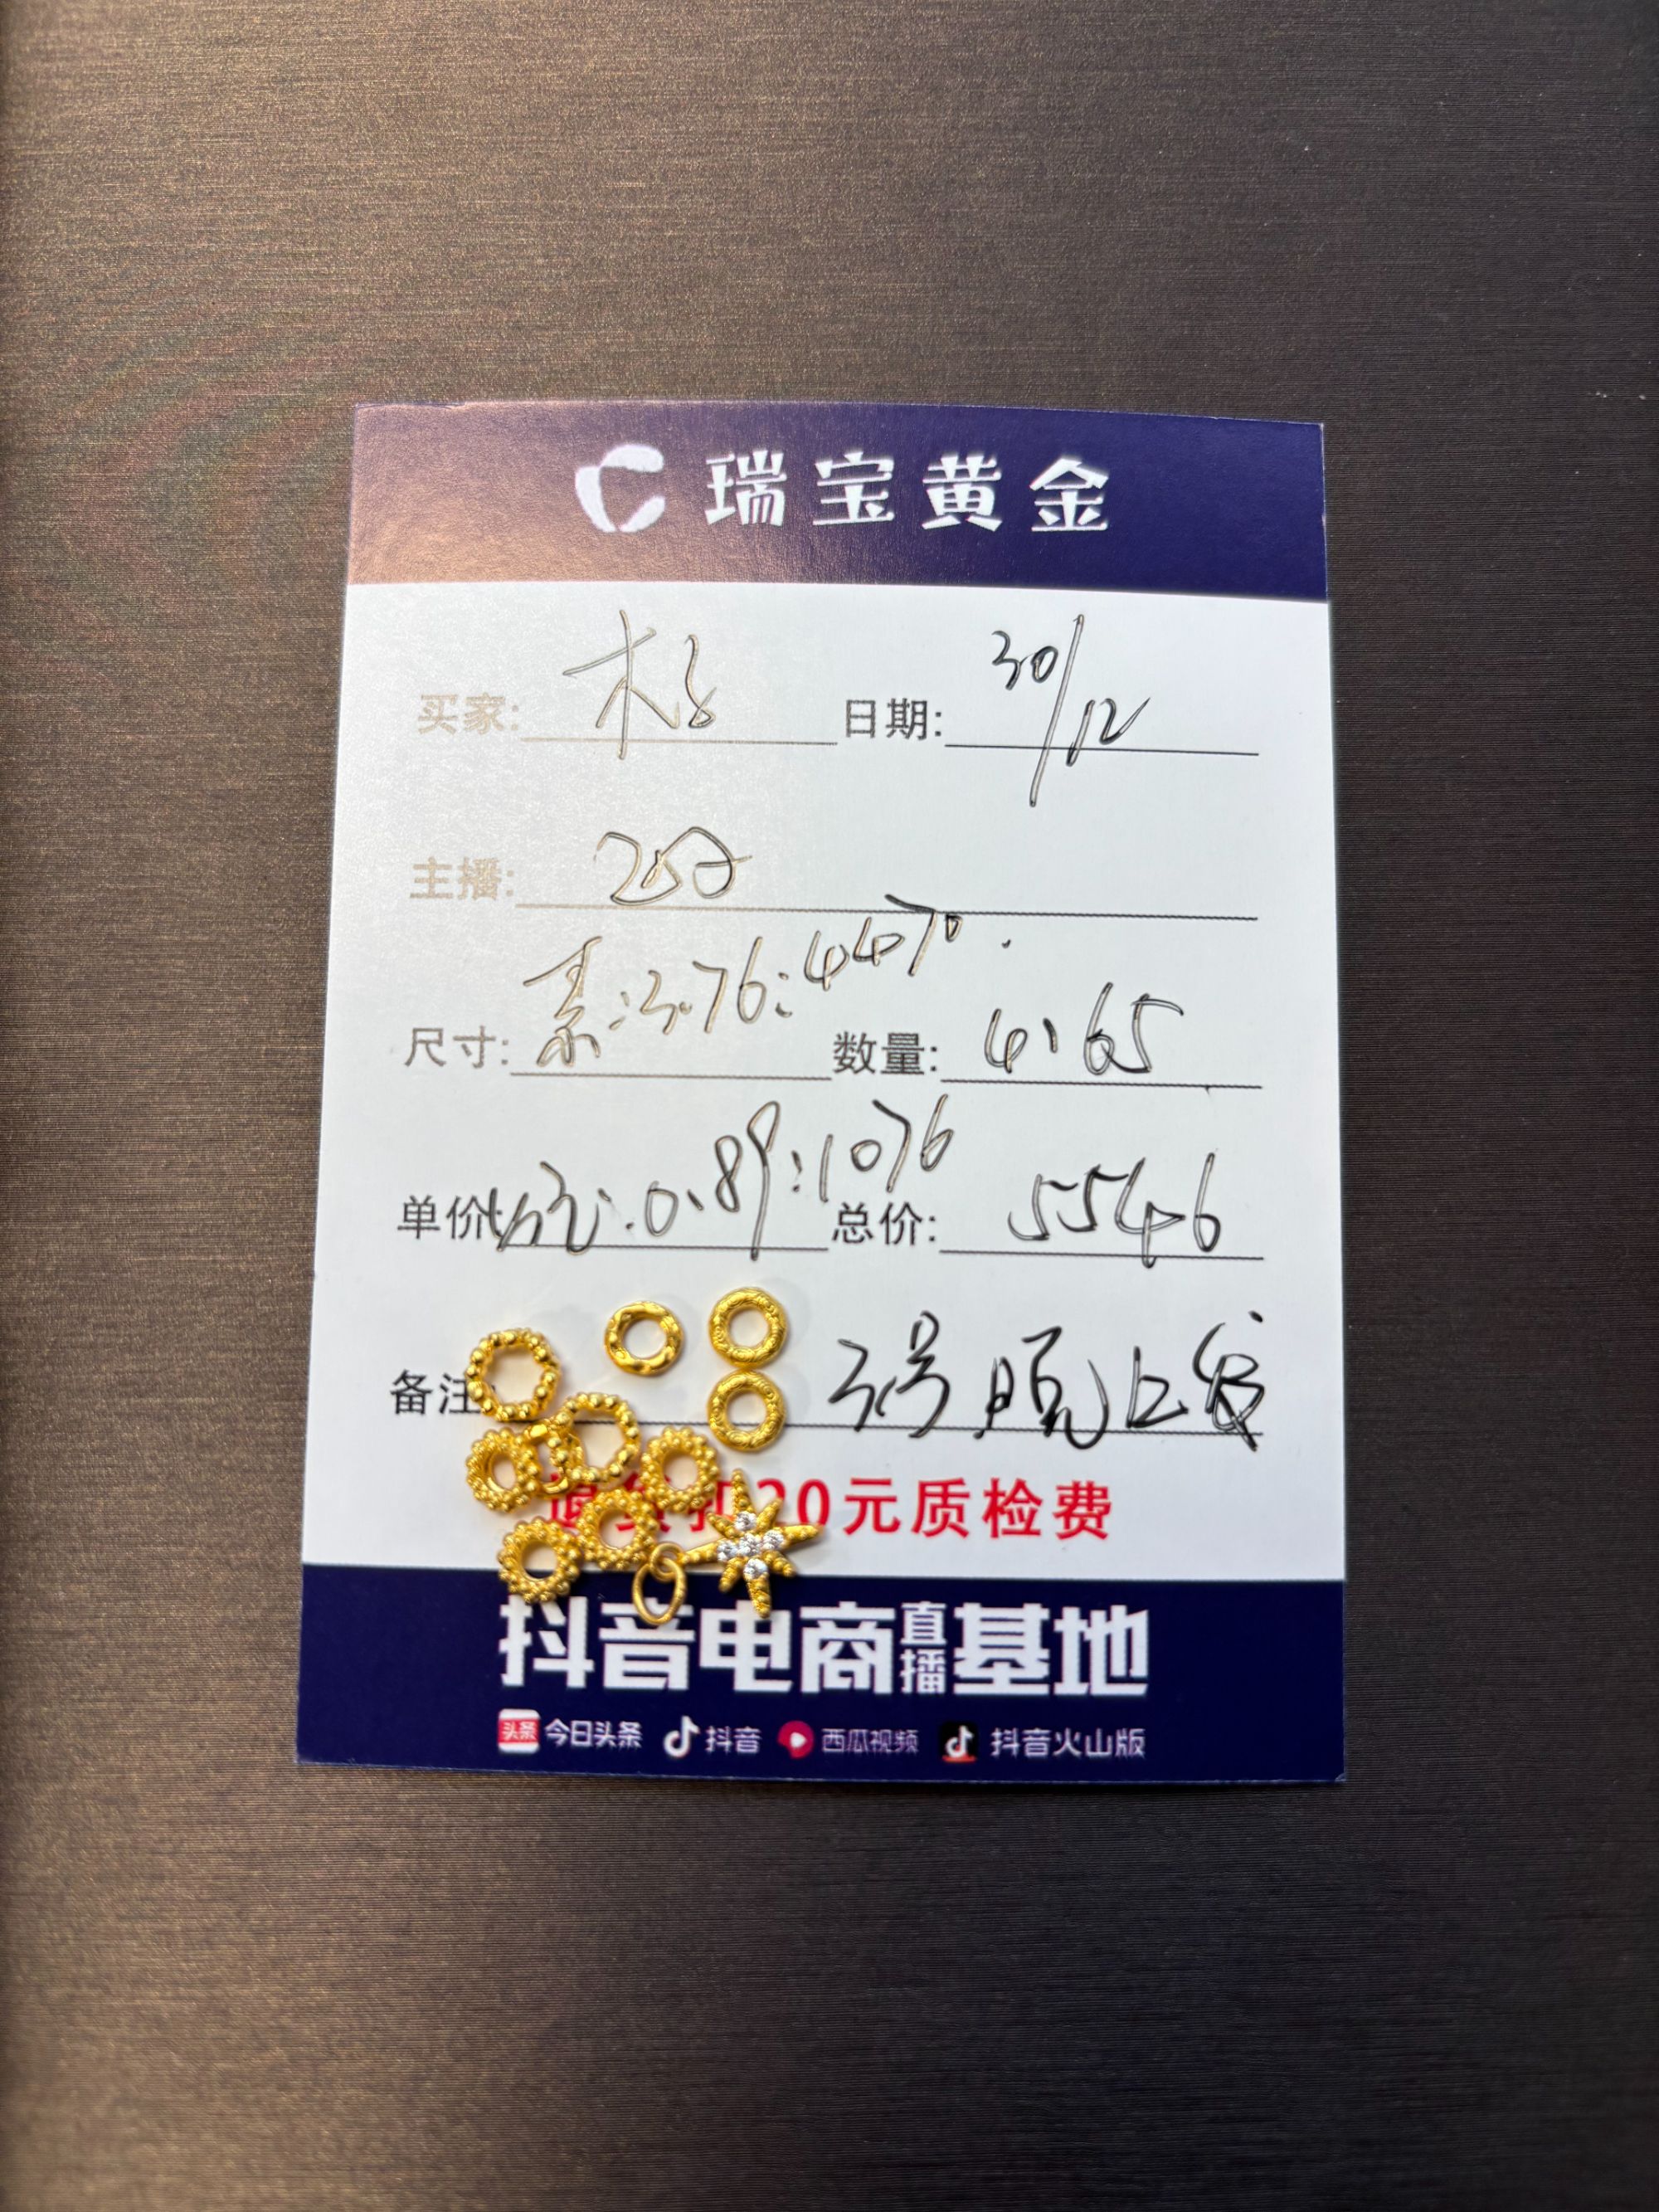 瑞宝黄金
买家: 木子 日期: 30/12
主播:
尺寸: 素:3.76:4470. 数量: 4.65
单价 :0.89:1076 总价: 5546
备注 3号晚上发
退货扣20元质检费
抖音电商直播基地
头条 今日头条 抖音 西瓜视频 抖音火山版